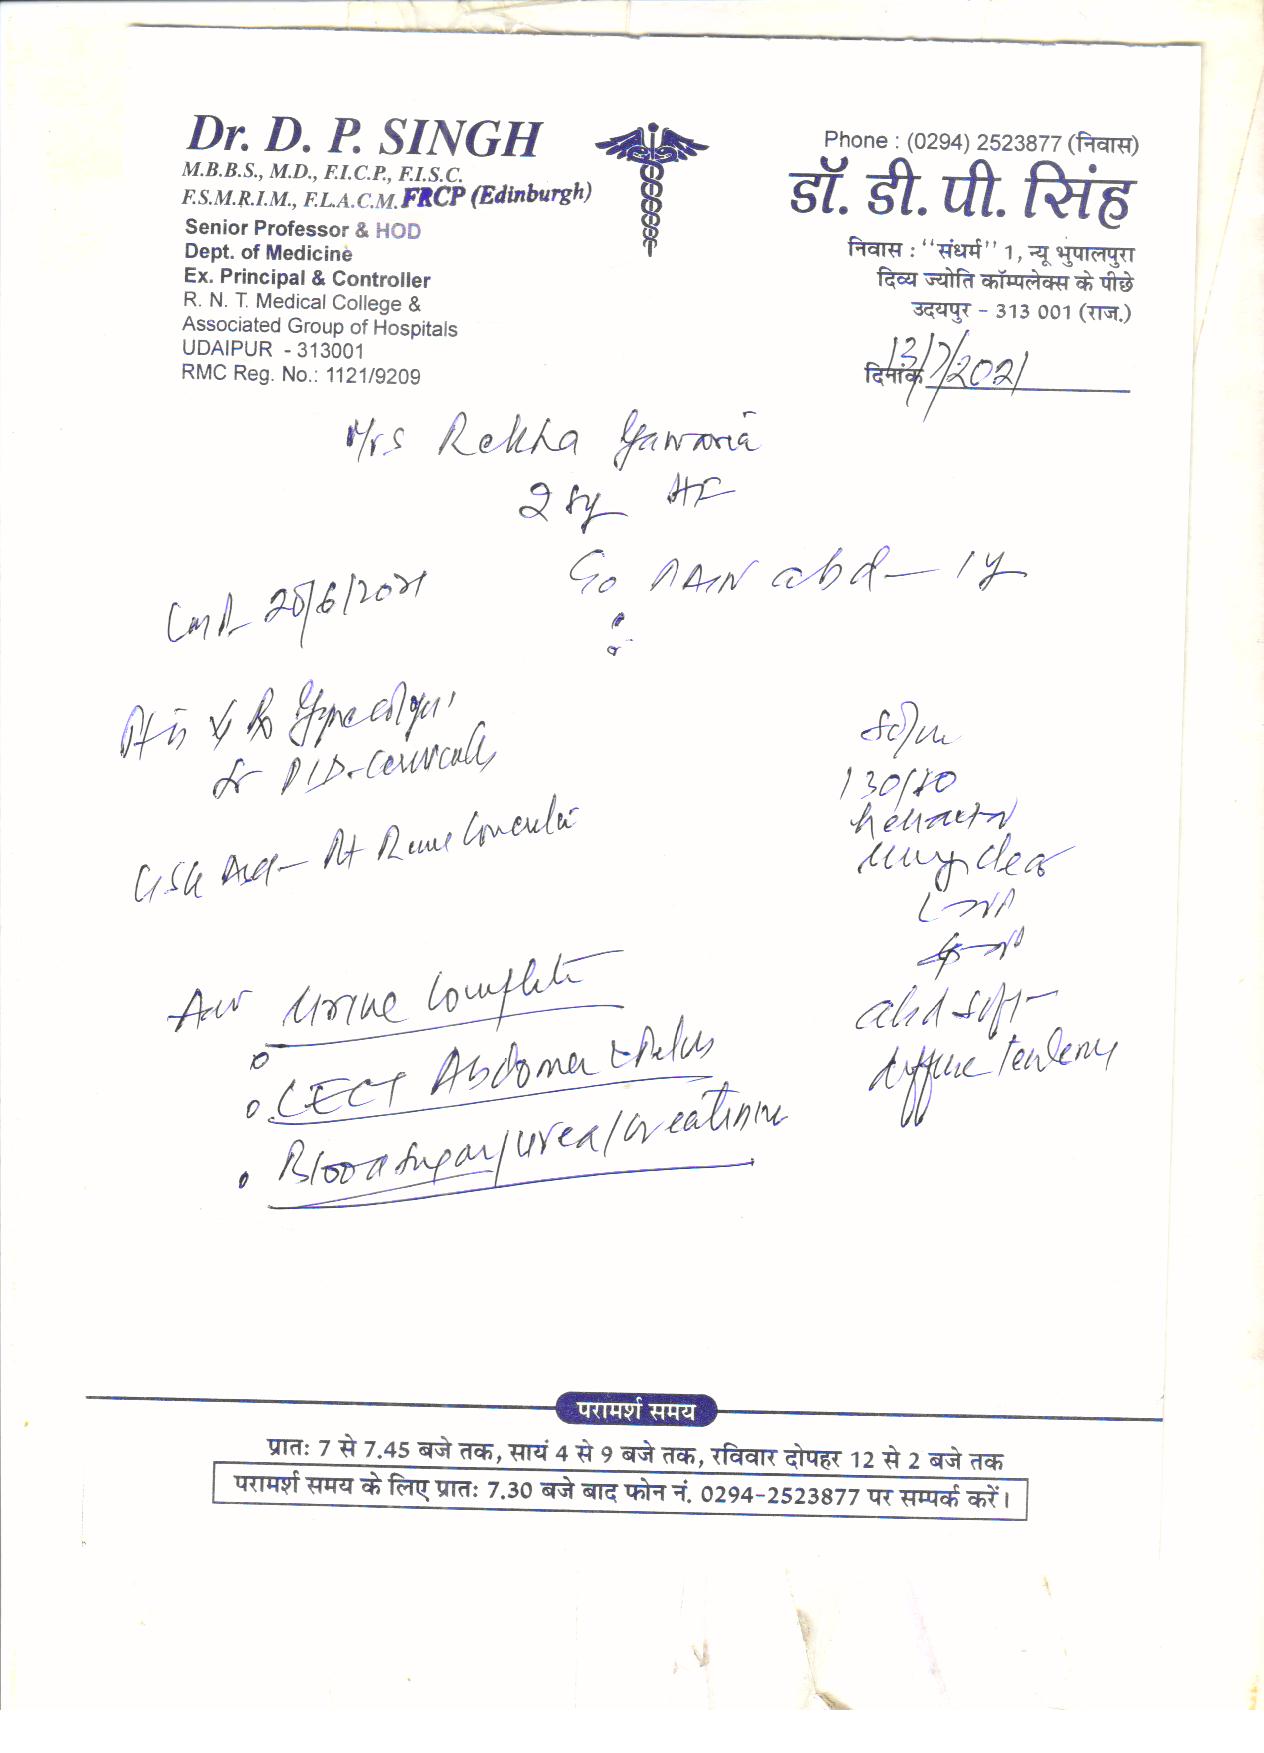 Dr. D. P. SINGH
M.B.B.S., M.D., F.I.C.P., F.I.S.C.
F.S.M.R.I.M., F.L.A.C.M. FRCP (Edinburgh)
Senior Professor & HOD
Dept. of Medicine
Ex. Principal & Controller
R. N. T. Medical College &
Associated Group of Hospitals
UDAIPUR - 313001
RMC Reg. No.: 1121/9209
Phone : (0294) 2523877 (निवास)
डॉ. डी. पी. सिंह
निवास : ‘‘संधर्म’’ 1, न्यू भुपालपुरा
दिव्य ज्योति कॉम्पलेक्स के पीछे
उदयपुर - 313 001 (राज.)
दिनांक 13/7/2021
Mrs Rekha
28y HF
C/o PAIN abd - 1y
28/6/2021
Pt is
for PID-
USG Abd - Rt Renal
130/80
clear
abd soft
diffuse
Adv Urine Complete
CECT Abdomen & Pelvis
Blood sugar/urea/creatinine
परामर्श समय
प्रातः 7 से 7.45 बजे तक, सायं 4 से 9 बजे तक, रविवार दोपहर 12 से 2 बजे तक
परामर्श समय के लिए प्रातः 7.30 बजे बाद फोन नं. 0294-2523877 पर सम्पर्क करें।